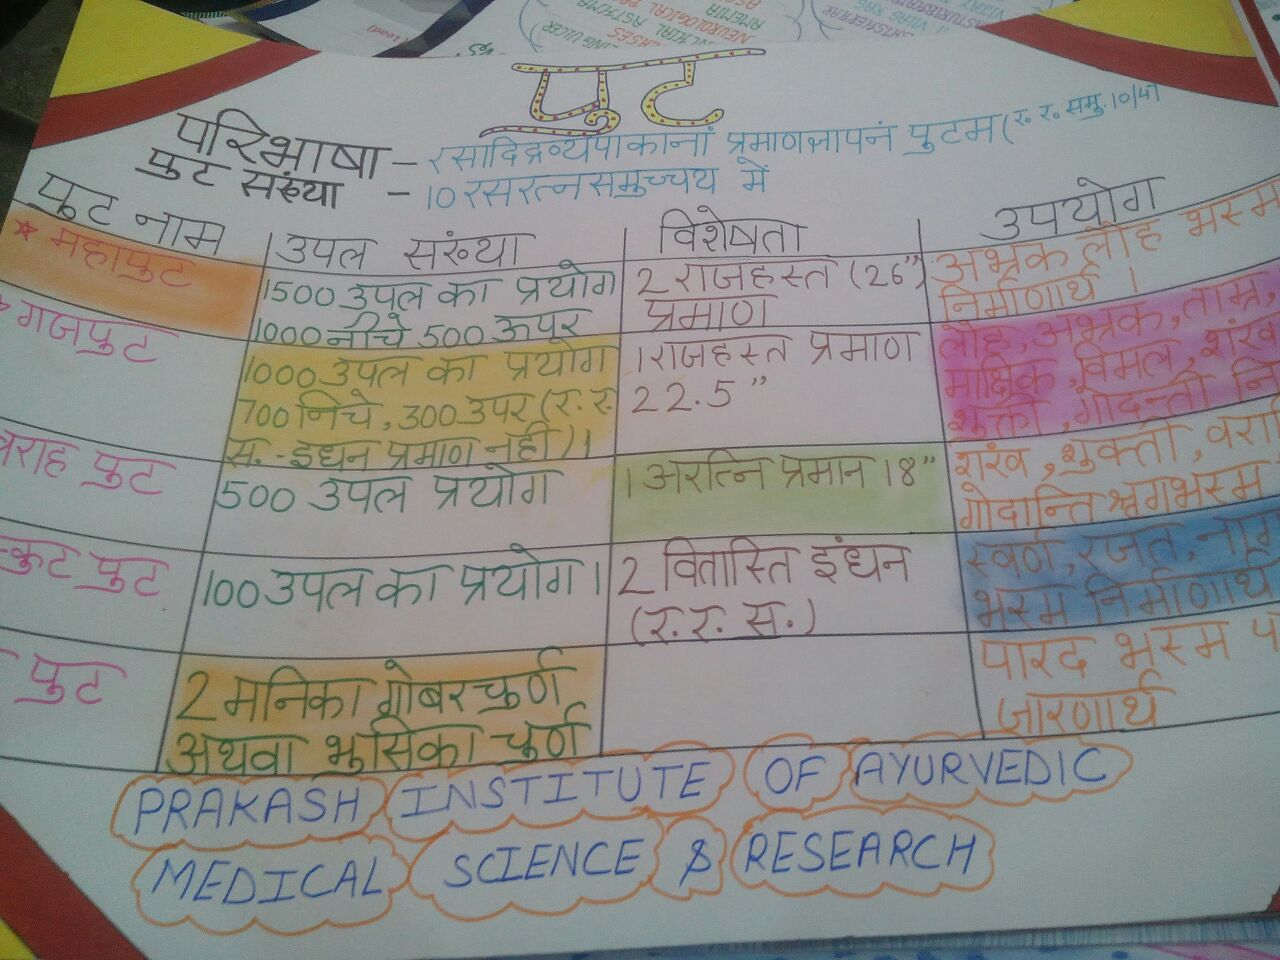 पुट
परिभाषा - रसादिद्रव्यपाकानां प्रमाणज्ञापनं पुटम (र. र. समु. 10/47
पुट संख्या - 10 रसरत्नसमुच्चय में
पुट नाम उपल संख्या विशेषता उपयोग
* महापुट
1500 उपल का प्रयोग
1000 नीचे 500 ऊपर
2 राजहस्त (26")
प्रमाण
अभ्रक लौह भस्म
निर्माणार्थ ।
गजपुट
1000 उपल का प्रयोग
700 निचे, 300 उपर (र. र.
स. - इंधन प्रमाण नही) ।
1 राजहस्त प्रमाण
22.5"
लौह, अभ्रक, ताम्र,
माक्षिक, विमल, शंख
शुक्ती, गोदन्ती नि
राह पुट
500 उपल प्रयोग
1 अरत्नि प्रमान 18"
शंख, शुक्ती, वरा
गोदान्ति श्रृगभस्म
कुट पुट
100 उपल का प्रयोग ।
2 वितास्ति इंधन
(र. र. स.)
स्वर्ण, रजत, नाग
भस्म निर्माणार्थ
पुट
2 मनिका गोबर चुर्ण
अथवा भुसिका चुर्ण
पारद भस्म
जारणार्थ
PRAKASH INSTITUTE OF AYURVEDIC
MEDICAL SCIENCE & RESEARCH